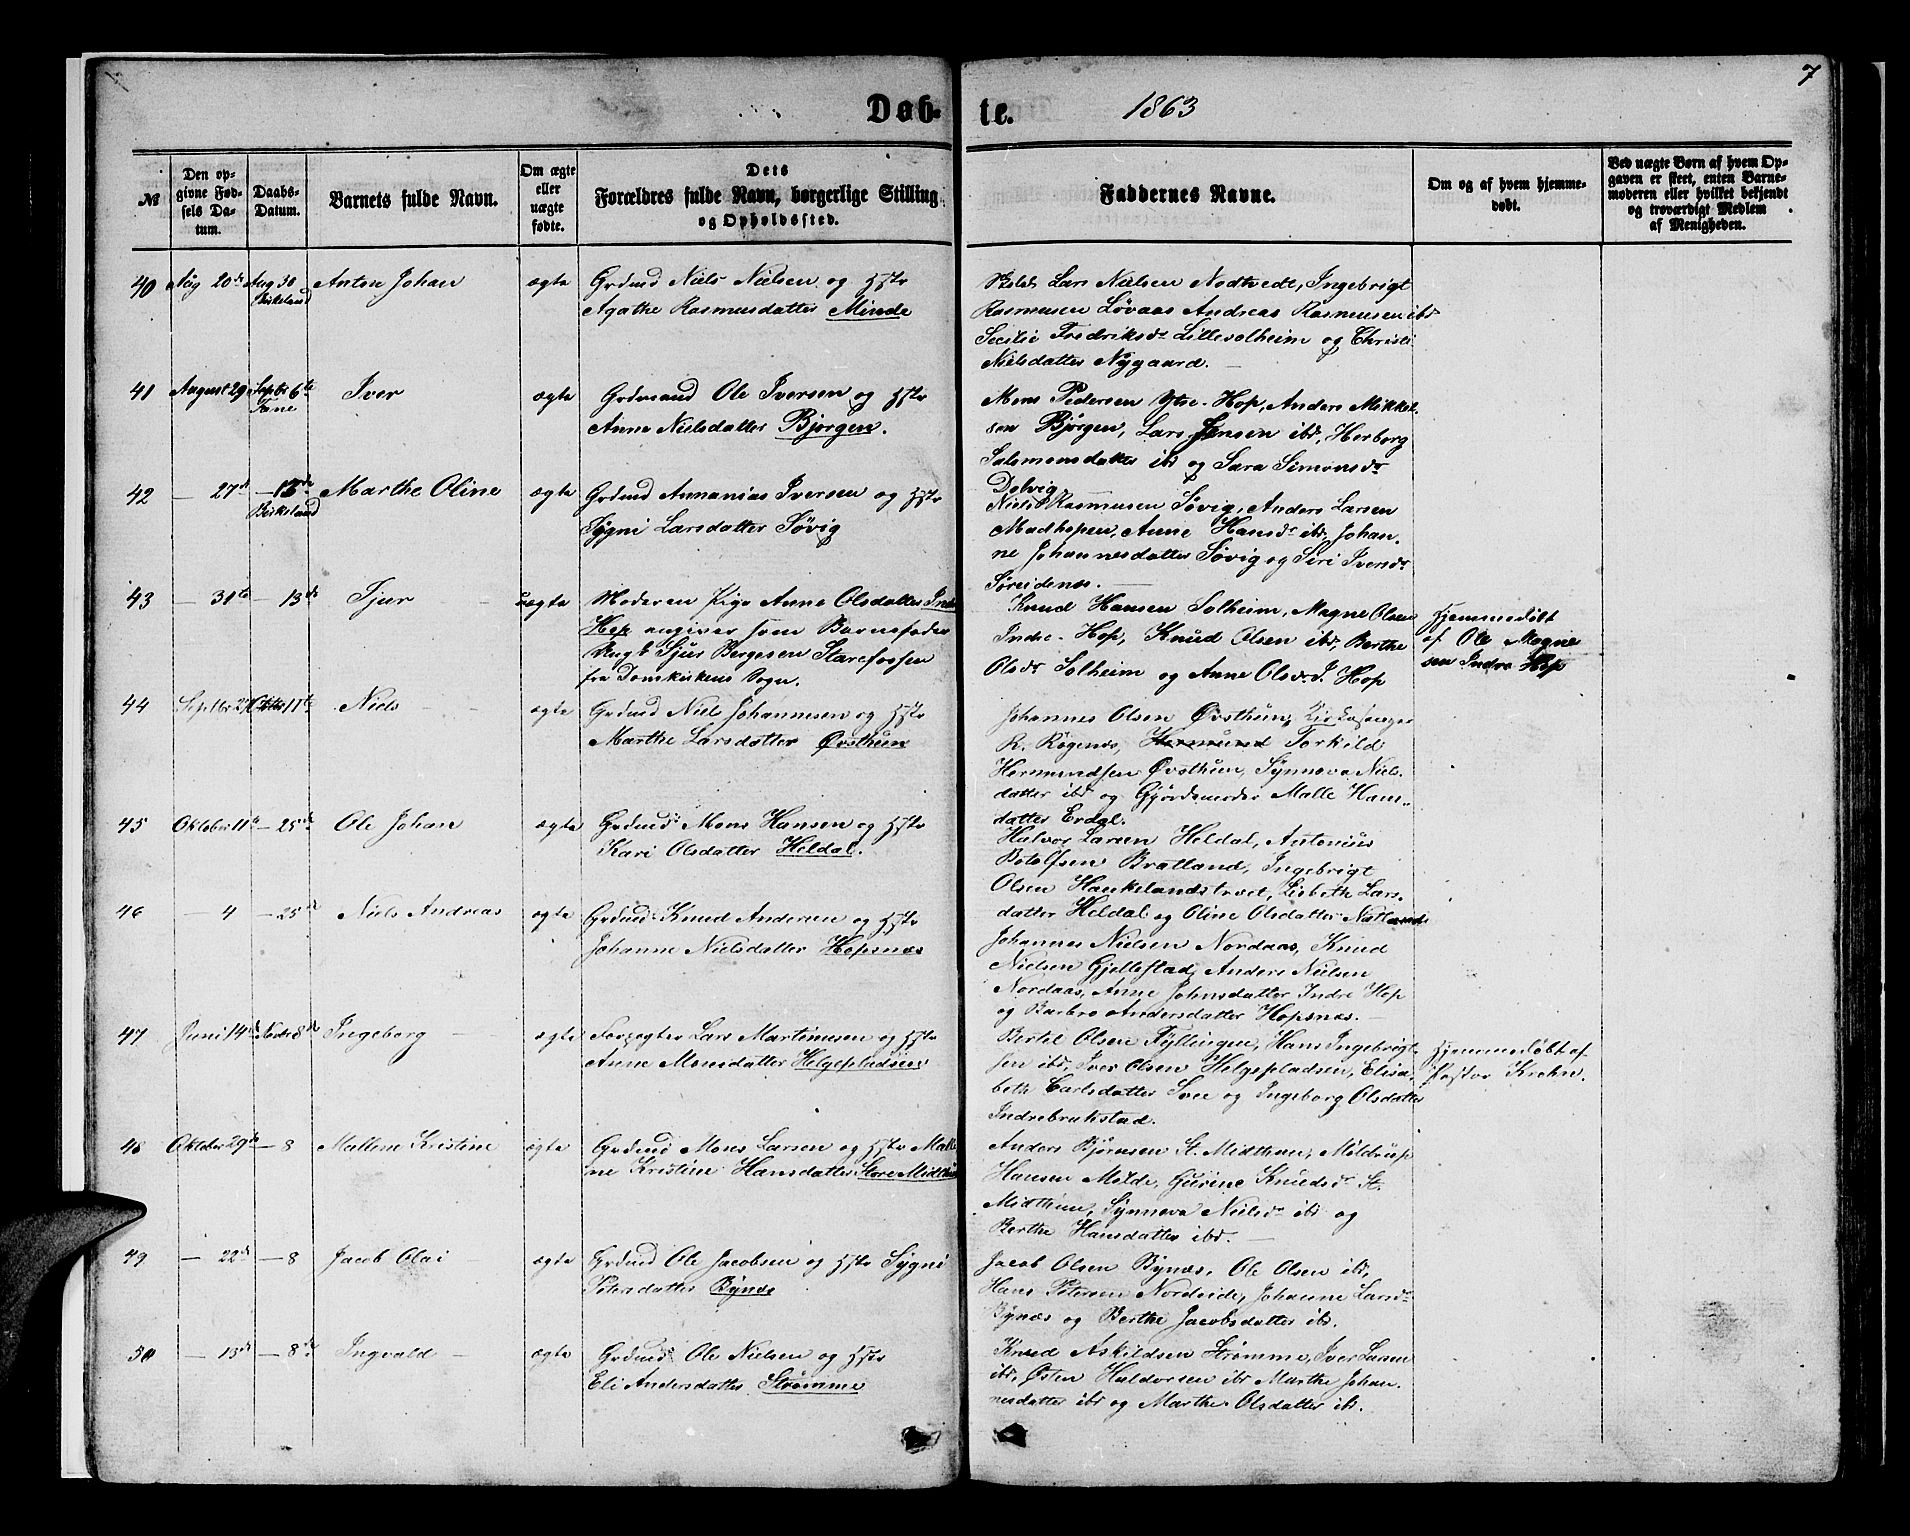 7
Døb-
te.
1863
№
Den op-
givne Fød-
sels Da-
tum.
Daabs-
Datum.
Barnets fulde Navn.
Om ægte
eller
uægte
fødte.
Dets
Forældres fulde Navn, borgerlige Stilling
og Opholdssted.
Faddernes Navne.
Om og af hvem hjemme-
døbt.
Ved uægte Børn af hvem Op-
gaven er skeet, enten Barne-
moderen eller hvilket bekjendt
og troværdigt Medlem
af Menigheden.
40 Aug 20de Aug 30 Anton Johan ægte Grdmd Niels Nielsen og Hstr
Birkeland
Agathe Rasmusdatter Minde
Lars Nielsen Nødtvedt, Ingebrigt
Rasmusen Løvaas Andreas Rasmusen ibd
Secilie Fredriksdr Lillesolheim og Christi
Nielsdatter Nygaard.
41 August 29 Septbr 6te Iver ægte Grdmand Ole Iversen og Hstr
Fane
Anne Nielsdatter Bjørgen.
Mons Pedersen Ytre-Hop, Anders Mikkel-
sen Bjørgen, Lars Jensen ibd, Herborg
Salomonsdatter ibd og Sara Simonsdr
Dolvig.
42 — 27d — 13de Marthe Oline ægte Grdmd Annanias Iversen og Hstr
Birkeland
Sygni Larsdatter Søvig
Niels Rasmusen Søvig, Anders Larsen
Madhopen, Anne Hansdr ibd, Johan-
ne Johannesdatter Søvig og Siri Iversdr
Søreidenæs.
43 — 31te — 13de Sjur uægte Moderen Pige Anne Olsdatter Indre
Hop angiver som Barnefader
Ungk Sjur Bergesen Starefossen
fra Domkirkens Sogn.
Knud Hansen Solheim, Magne Olsen
Indre-Hop, Knud Olsen ibd, Berthe
Olsdr Solheim og Anne Olsdr I. Hop
Hjemmedøbt
af Ole Magne
sen Indre Hop
44 Septbr Oktbr 11te Niels ægte Grdmd Niel Johannesen og Hstr
Marthe Larsdatter Øvsthun
Johannes Olsen Øvsthun, Kirkesanger
R. Røgenæs, Hermund Torkild
Hermundsen Øvsthun, Synneva Niels-
datter ibd og Gjordemoder Malle Hans-
datter Erdal.
45 Oktober 11te — 25de Ole Johan ægte Grdmd Mons Hansen og Hstr
Kari Olsdatter Heldal.
Halvor Larsen Heldal, Antonius
Botolfsen Bratland, Ingebrigt
Olsen Haukelandstræt, Lisbeth Lars-
datter Heldal og Oline Olsdatter Natland
46 — 4 — 25de Niels Andreas ægte Grdmd Knud Andersen og Hstr
Johanne Nielsdatter Hopsnæs
Johannes Nielsen Nordaas, Knud
Nielsen Gjellestad, Anders Nielsen
Nordaas, Anne Johnsdatter Indre Hop
og Barbro Andersdatter Hopsnæs.
47 Juni 14de Novbr 8de Ingeborg ægte Forpagter Lars Martinusen og Hstr
Anne Monsdatter Helgepladsen
Bertil Olsen Fyllingen, Hans Ingebrigt-
sen ibd, Iver Olsen Helgepladsen, Elisa-
beth Carlsdatter Svee og Ingeborg Olsdatter
Indrebrukstad.
Hjemmedøbt af
Pastor Krohn.
48 Oktober 29de — 8 Mallene Kristine ægte Grdmd Mons Larsen og Hstr Malle
ne Kristine Hansdatter Store Midthun
Anders Bjørnsen St. Midthun, Møldrup
Hansen Melde, Gurine Knudsdr St.
Midthun, Synneva Nielsdr ibd og
Berthe Hansdatter ibd.
49 — 22de — 8 Jacob Olai ægte Grdmd Ole Jacobsen og Hstr Sygni
Petersdatter Bynæs
Jacob Olsen Bynæs, Ole Olsen ibd,
Hans Petersen Nordeide, Johanne Larsdr
Bynæs og Berthe Jacobsdatter ibd.
50 — 13de — 8de Ingvald ægte Grdmd Ole Nielsen og Hstr
Eli Andersdatter Strømme
Knud Askildsen Strømme, Iver Larsen
ibd, Østen Haldorsen ibd Marthe Johan-
nesdatter ibd og Marthe Olsdatter ibd.